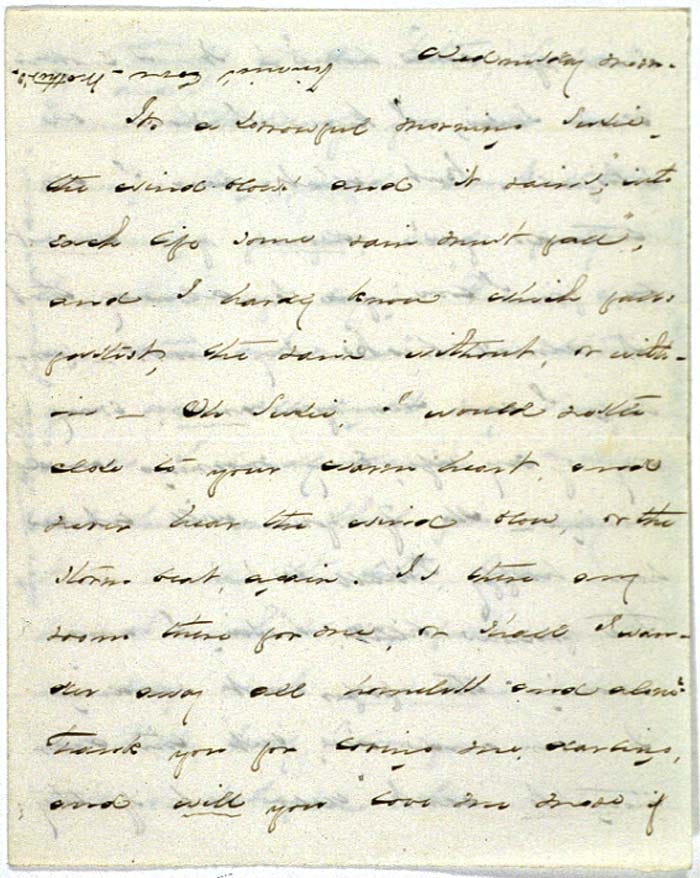 Wednesday morn.
Vinnie's love - Mother's -
It's a sorrowful morning Susie,
the wind blows and it rains; "into
each life some rain must fall",
and I hardly know which falls
fastest, the rain without, or with-
in - Oh Susie, I would nestle
close to your warm heart, and
never hear the wind blow, or the
storm beat, again. Is there any
room there for me, or shall I wan-
der away all homeless and alone?
Thank you for loving me, darling,
and will you "love me more if